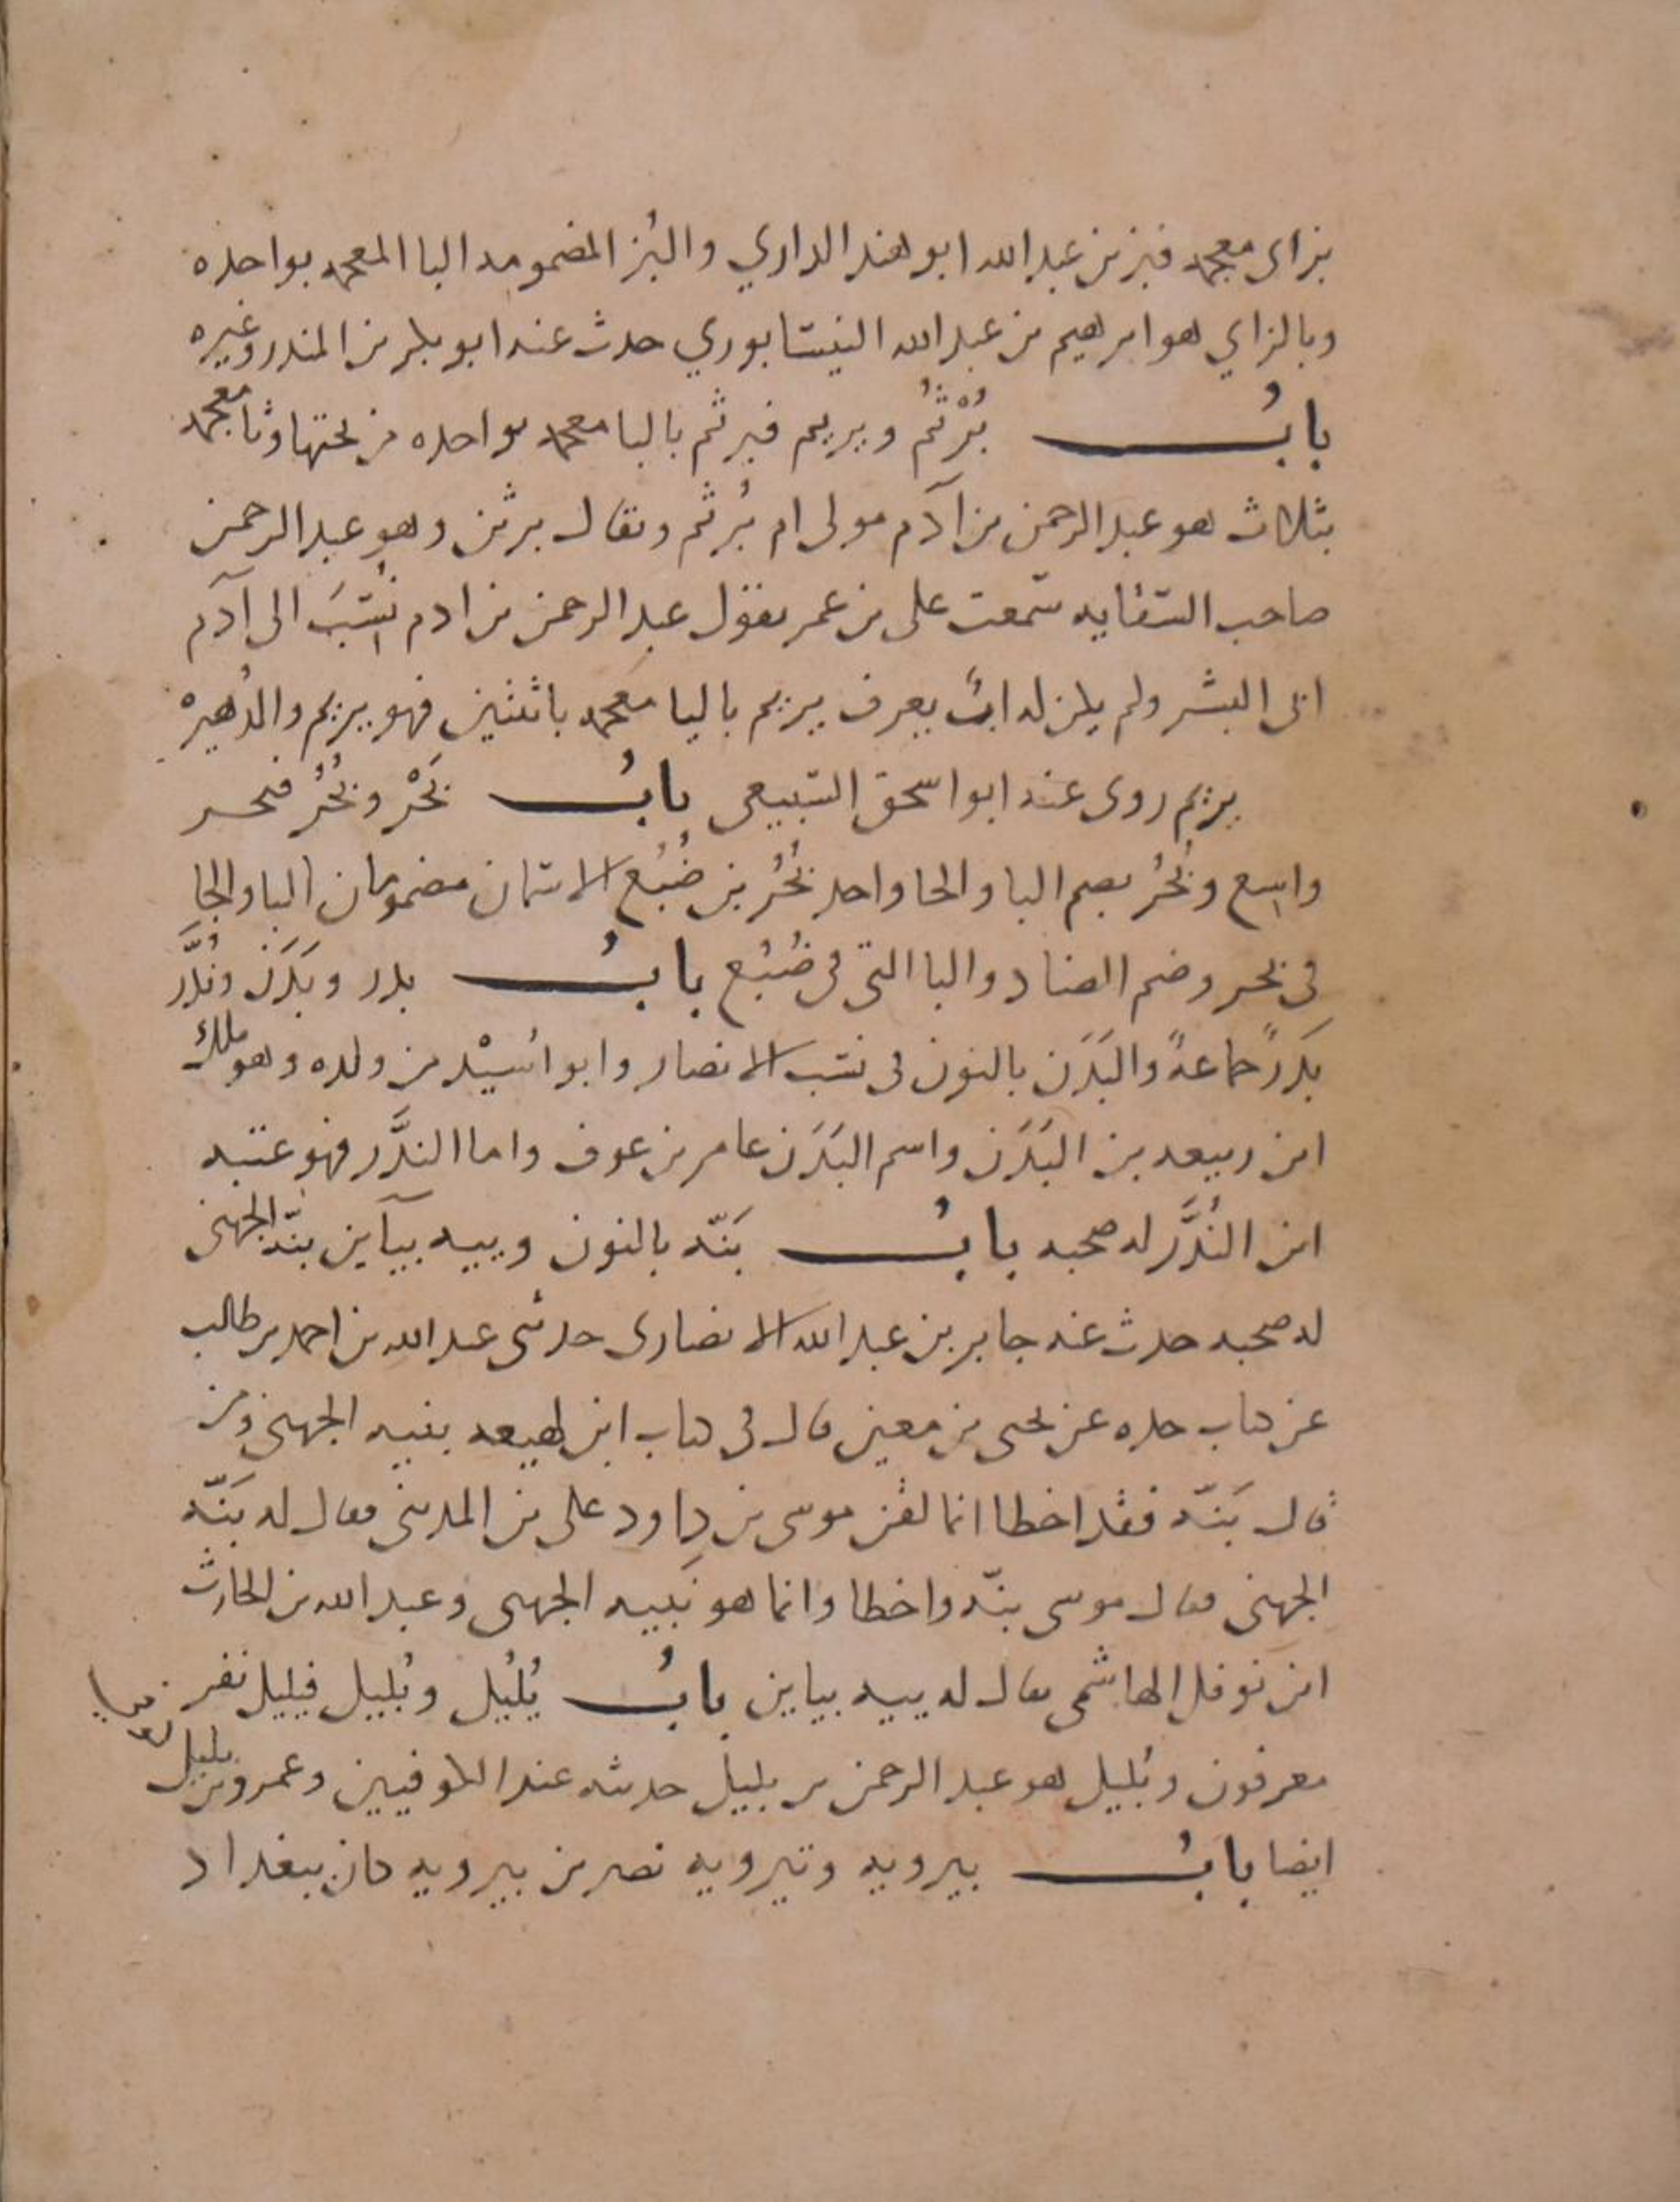 بزاى معجمه فبز بن عبد الله ابو هند الداري والبُز المضمومه البا المعجمه بواحده
وبالزاي هو ابرهيم بن عبد الله النيسابوري حدث عنه ابو بكر بن المنذر وغيره
بابُ بُرْثُمُ ويريم فبرثم بالبا معجمه بواحده من تحتها وثا معجمه
بثلاث هو عبد الرحمن بن آدم مولى ام بُرثم ويقال برثن وهو عبد الرحمن
صاحب السقايه سمعت على بن عمر يقول عبد الرحمن بن ادم نُسِبَ الى آدم
ابى البشر ولم يكن له ابٌ يعرف يريم باليا معجمه باثنتين فهو يريم والد هبيره
يريم روى عنه ابو اسحق السبيعى بابُ بَحْر وبُحُر فبحر
واسع وبُحُر بضم البا والحا واحد بُحُر بن ضُبُع الاسمان مضمومان البا والحا
فى بحر وضم الضاد والبا التى فى ضُبُع بابُ بدر وبَدَن ونُدَّر
بَدرٌ جماعةٌ والبَدَن بالنون فى نسب الانصار وابو اسَيْد من ولده وهو ملك
ابن ربيعه بن البَدَن واسم البَدَن عامر بن عوف واما الندَّر فهو عتبه
ابن النُدَّر له صحبه بابُ بَنّه بالنون وببيه ببآين بنّه الجهنى
له صحبه حدث عنه جابر بن عبد الله الانصارى حدثنى عبد الله بن احمد بن طالب
عن كتاب جده عن يحيى بن معين قال فى كتاب ابن لهيعه بنيه الجهنى ومن
قال بَنّه فقد اخطا انما لقن موسى بن داود على بن المدينى فقال له بَنّه
الجهنى فقال موسى بنّه واخطا وانما هو نُبيه الجهنى وعبد الله بن الحارث
ابن نوفل الهاشمى يقال له ببيه ببابن بابُ يُلَيل وبُليل فيليل نفر
معرفون وبُليل هو عبد الرحمن بن بليل حديثه عند الكوفيين وعمرو بن بليل
ايضا بابُ بيرويه وتيرويه نصر بن بيرويه كان ببغداد